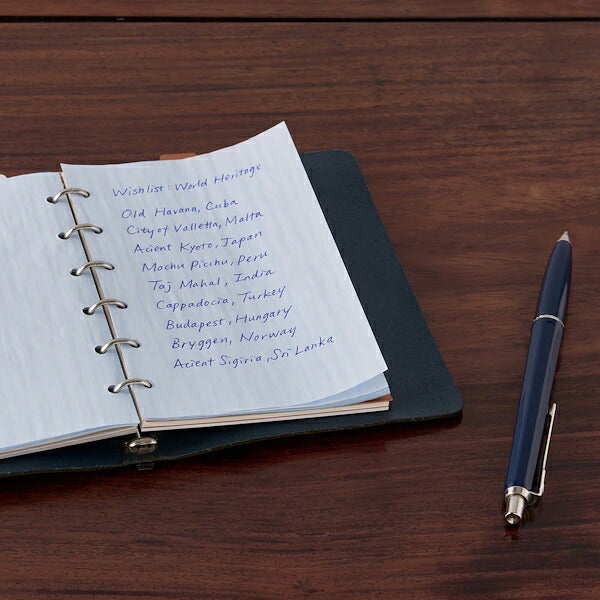 Wishlist : World Heritage
Old Havana, Cuba
City of Valletta, Malta
Acient Kyoto, Japan
Machu Picchu, Peru
Taj Mahal, India
Cappadocia, Turkey
Budapest, Hungary
Bryggen, Norway
Acient Sigiria, Sri Lanka